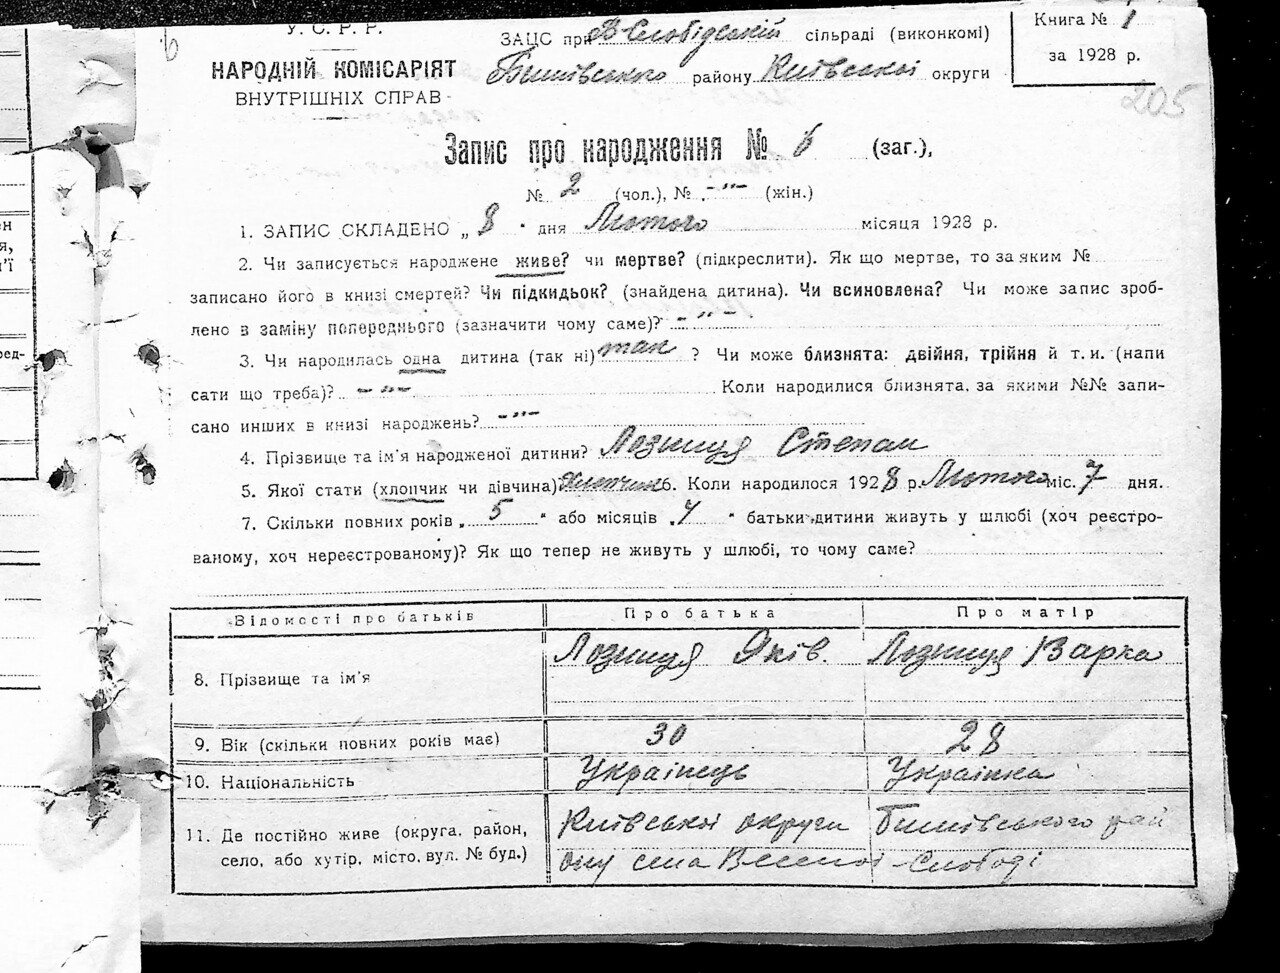 6
У. С. Р. Р.
НАРОДНІЙ КОМІСАРІЯТ
ВНУТРІШНІХ СПРАВ
ЗАЦС при В-Слобідській сільраді (виконкомі)
Бишівського району Київської округи
Книга № 1
за 1928 р.
205
Запис про народження № 6 (заг.),
№ 2 (чол.), № -"- (жін.)
1. ЗАПИС СКЛАДЕНО „ 8 " дня Лютого місяця 1928 р.
2. Чи записується народжене живе? чи мертве? (підкреслити). Як що мертве, то за яким №
записано його в книзі смертей? Чи підкидьок? (знайдена дитина). Чи всиновлена? Чи може запис зроб-
лено в заміну попереднього (зазначити чому саме)? -"-
3. Чи народилась одна дитина (так ні) так ? Чи може близнята: двійня, трійня й т. и. (напи
сати що треба)? -"- Коли народилися близнята, за якими №№ запи-
сано инших в книзі народжень? -"-
4. Прізвище та ім'я народженої дитини? Лозниця Степан
5. Якої стати (хлопчик чи дівчина) Хлопчик 6. Коли народилося 1928 р. Лютого міс. 7 дня.
7. Скільки повних років „ 5 " або місяців „ 4 " батьки дитини живуть у шлюбі (хоч реєстро-
ваному, хоч нереєстрованому)? Як що тепер не живуть у шлюбі, то чому саме?
Відомості про батьків Про батька Про матір
8. Прізвище та ім'я Лозниця Яків. Лозниця Варка
9. Вік (скільки повних років має) 30 28
10. Національність Українець Українка
11. Де постійно живе (округа, район, Київської округи Бишівського рай
село, або хутір, місто, вул. № буд.) ону села Веселої Слободі